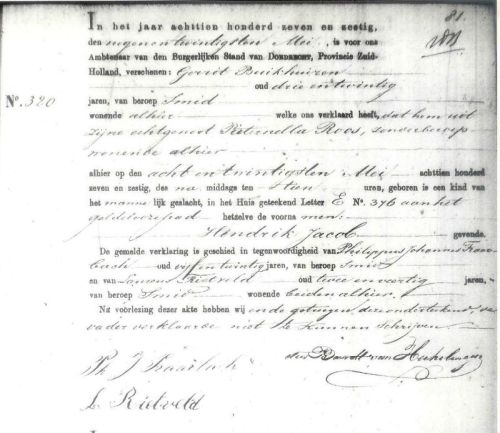 81.
In het jaar achttien honderd zeven en zestig,
den negenentwintigsten Mei, is voor ons
Ambtenaar van den Burgerlijken Stand van DORDRECHT, Provincie Zuid-
Holland, verschenen: Gerrit Buikhuizen
oud drie en twintig
N°. 320
jaren, van beroep Smid
wonende alhier welke ons verklaard heeft, dat hem uit
zijne echtgenoot Pieternella Roos, zonder beroep
wonende alhier
alhier op den acht en twintigsten Mei achttienhonderd
zeven en zestig, des na middags ten tien uren, geboren is een kind van
het mannelijk geslacht, in het Huis geteekend Letter E N°. 376 aan het
hetzelve de voornamen:
Hendrik Jacob gevende.
De gemelde verklaring is geschied in tegenwoordigheid van Philippus Johannes
oud vijf en twintig jaren, van beroep Smid
en van Rietveld oud twee en veertig jaren,
van beroep Smid wonende beiden alhier.
Na voorlezing dezer akte hebben wij en de getuigen deze onderteekend, de
vader verklaarde niet te kunnen schrijven.
Ph J
L Rietveld